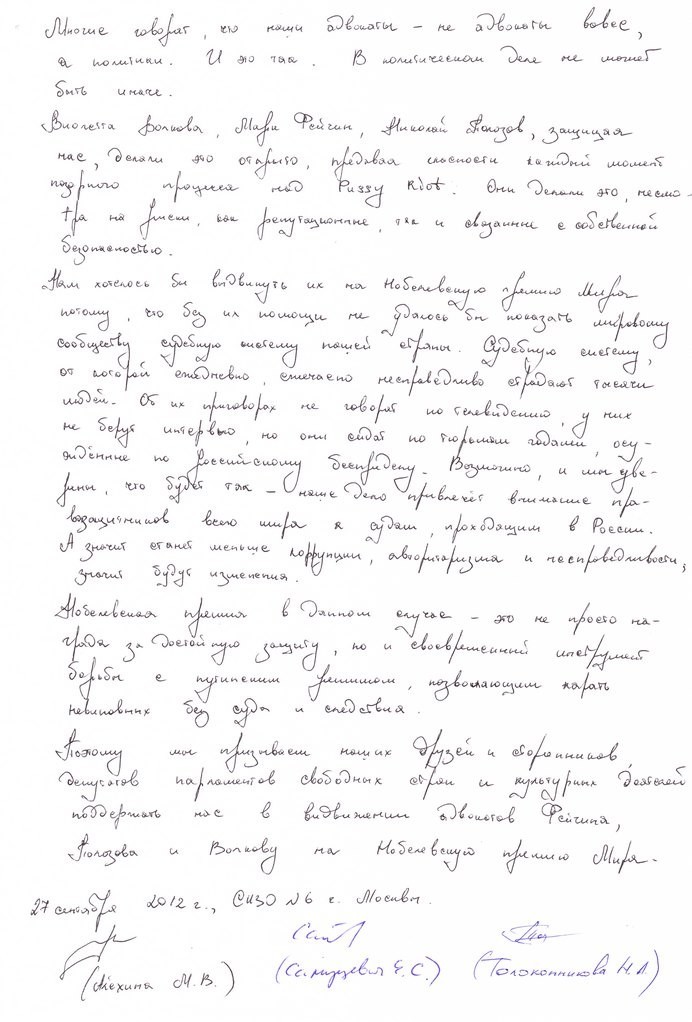 Многие говорят, что наши адвокаты – не адвокаты вовсе,
а политики. И это так. В политическом деле не может
быть иначе.
Виолетта Волкова, Марк Фейгин, Николай Полозов, защищая
нас, делали это открыто, предавая гласности каждый момент
позорного процесса над Pussy Riot. Они делали это, несмо-
тря на риски, как репутационные, так и связанные с собственной
безопасностью.
Нам хотелось бы выдвинуть их на Нобелевскую премию Мира
потому, что без их помощи не удалось бы показать мировому
сообществу судебную систему нашей страны. Судебную систему,
от которой ежедневно, несправедливо страдают тысячи
людей. Об их приговорах не говорят по телевидению, у них
не берут интервью, но они сидят по тюрьмам годами, осу-
ждённые по российскому беспределу. Возможно, и мы уве-
рены, что будет так – наше дело привлечёт внимание пра-
возащитников всего мира к судам, проходящим в России.
А значит станет меньше коррупции, авторитаризма и несправедливости,
значит будут изменения.
Нобелевская премия в данном случае – это не просто на-
града за достойную защиту, но и своевременный инструмент
борьбы с путинским режимом, позволяющим карать
невиновных без суда и следствия.
Поэтому мы призываем наших друзей и сторонников,
депутатов парламентов свободных стран и культурных деятелей
поддержать нас в выдвижении адвокатов Фейгина,
Полозова и Волкову на Нобелевскую премию Мира.
27 сентября 2012 г., СИЗО №6 г. Москвы.
(Алехина М.В.) (Самуцевич Е.С.) (Толоконникова Н.А.)